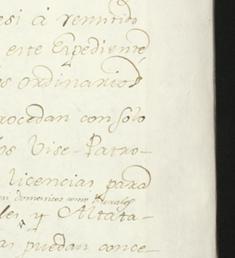 esi à remitido
este Expediente
s ordinarios
rocedan con solo
os Vise-Patro-
licencias para
les y Altata-
as puedan conce-